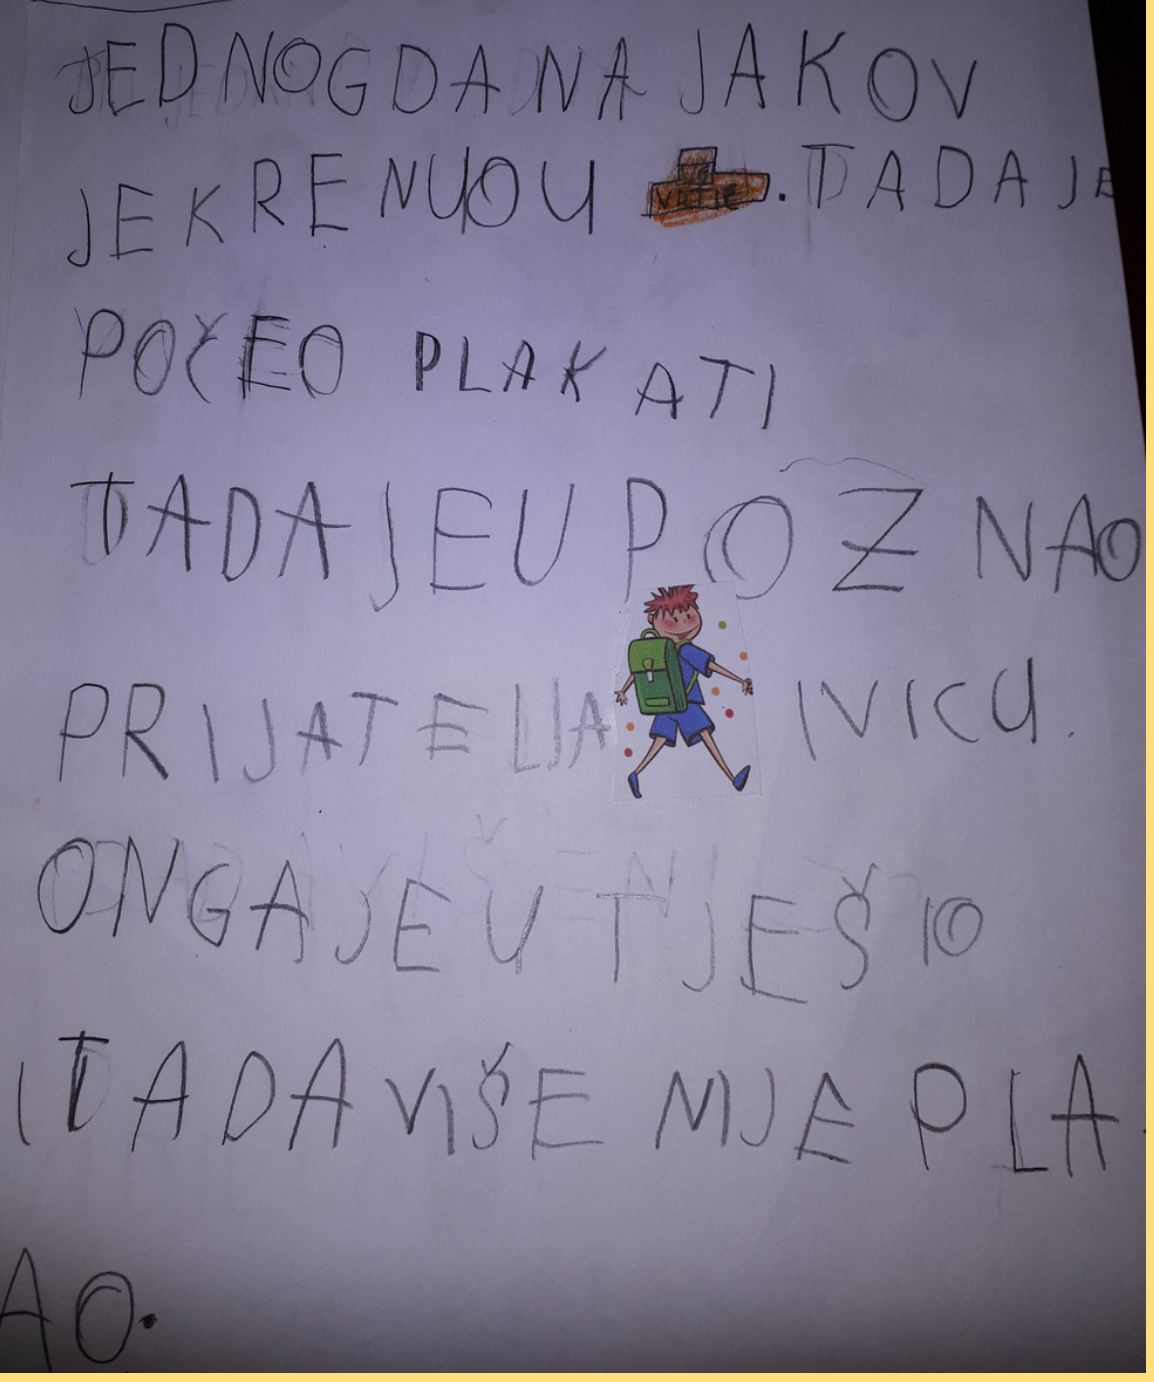 JEDNOG DANA JAKOV
JE KRENUO U VRTIĆ. TADA JE
POČEO PLAKATI
TADA JE UPOZNAO
PRIJATELJA IVICU.
ON GA JE UTJEŠIO
I TADA VIŠE NIJE PLA
AO.